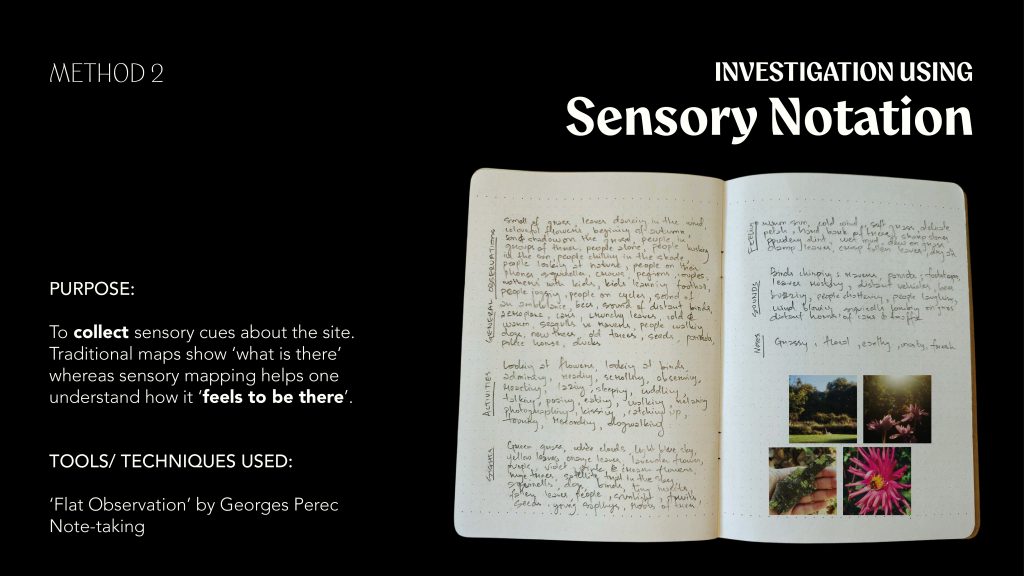 METHOD 2
INVESTIGATION USING
Sensory Notation
PURPOSE:
To collect sensory cues about the site.
Traditional maps show ‘what is there’
whereas sensory mapping helps one
understand how it ‘feels to be there’.
TOOLS/ TECHNIQUES USED:
‘Flat Observation’ by Georges Perec
Note-taking
GENERAL OBSERVATIONS
Smell of grass, leaves dancing in the wind,
colourful flowers, begining of autumn,
shadow on the grass, people in
groups of three, people alone, people
in the sun, people chilling in the shade,
people looking at nature, people on their
phones, couples,
with kids, kids learning football,
people jogging, people on cycles, sound of
an ambulance, bees, sound of distant birds,
aeroplane, cars, crunchy leaves, cold &
warm, seagulls people walking
dogs, seeds,
police house,
ACTIVITIES
Looking at flowers, looking at birds,
admiring, reading, scrolling, observing,
sleeping, cuddling,
talking, posing, eating, walking, relaxing
photographing, kissing, catching up,
recording, dogwalking
SIGHTS
Green grass, white clouds, light blue sky,
yellow leaves, orange leaves, lavender flowers,
purple, violet, flowers,
huge trees, in the sky,
dogs, birds, tiny
leaves, people, sunlight,
seeds, young saplings, roots of trees.
FEELING
warm sun, cold wind, soft grass, delicate
petals, hard bark of trees, sharp stones
powdery dirt, wet mud, dew on grass
damp leaves, crisp fallen leaves,
SOUNDS
Birds chirping, footsteps,
leaves rustling, distant vehicles, bees
buzzing, people chattering, people laughing,
wind blowing,
distant of cars & traffic
Grassy, floral, earthy, fresh